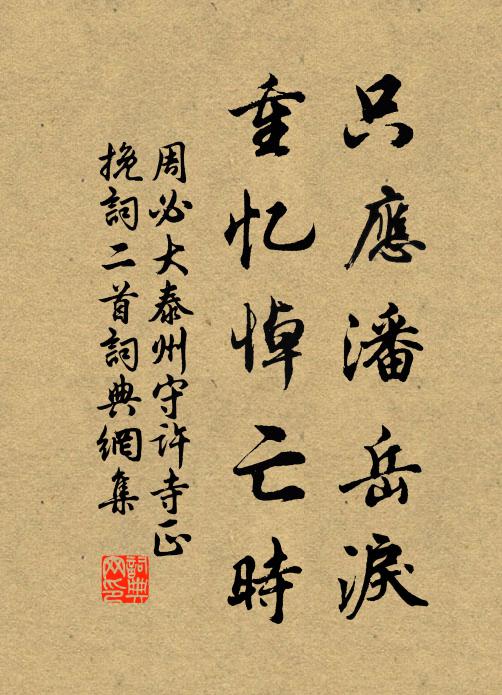 只應潘岳淚
重忆悼亡時
周必大泰州守许寺正
挽詞二首詞典網集
詞典
网印